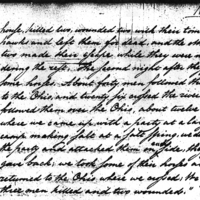 house, killed two, wounded two with their tom
hawks and left them for dead, and the oth
two made their escape while they were mu
dering the rest. They proceeded off after
some horses. About forty men followed th
to the Ohio, and twenty six crossed the river
followed them over the Ohio, about twelve
where we came up with a party at a la
camp making salt at a salt spring, we
the party and attacked them on side, the
gave back; we took some of their horses an
returned to the Ohio where we crossed. We
three men killed and two wounded."